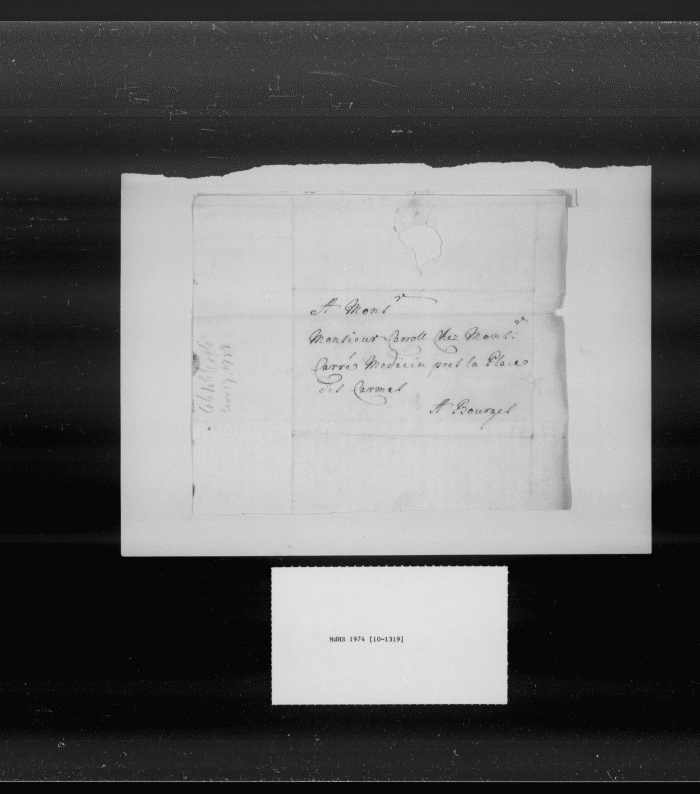 A Mons^r
Monsieur Carroll Chez Mons^r
Carré Medecin pres la Place
des Carmes
A Bourges
MdHS 1974 [10-1319]